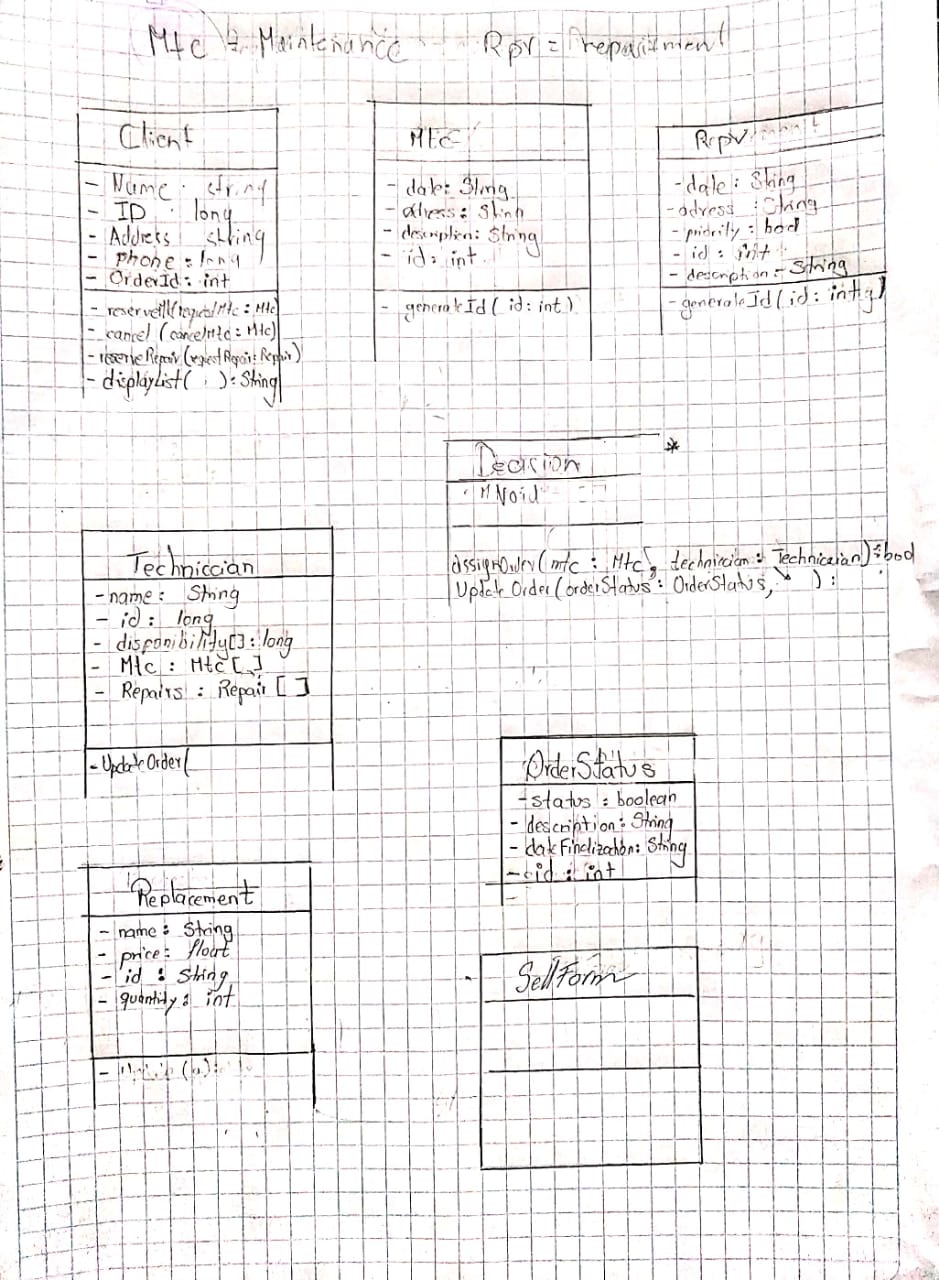 Mtc = Maintenance Rpr =
Client
- Name : string
- ID : long
- Address : string
- phone : long
- OrderId : int
- cancel (cancelMtc : Mtc)
- reserveRepair (requestRepair: Repair)
- displayList( ) : String
Mtc
- date: String
- description: String
- id : int
- generateId ( id : int )
Rpr
- date : String
- adress : String
- priority : bool
- id : int
- description = String
- generateId ( id : int
Decision *
assignOrder (mtc : Mtc, technician :
Update Order (orderStatus : OrderStatus, ) :
Techniccian
- name : String
- id : long
- disponibility[] : long
- Mtc : Mtc [ ]
- Repairs : Repair [ ]
- Update Order (
OrderStatus
- status : boolean
- description : String
- : String
- id : int
-
Replacement
- name : String
- price : float
- id : String
- quantity : int
SellForm